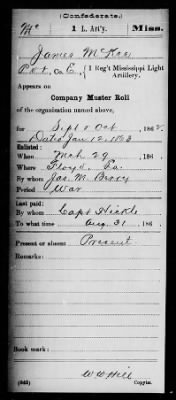 (Confederate.)
Mc 1 L. Art'y. Miss.
James McKee
Pvt, Co. E, 1 Reg't Mississippi Light
Artillery.
Appears on
Company Muster Roll
of the organization named above,
for Sept & Oct, 1862.
Dated Jan 12, 1863
Enlisted:
When Mch 29, 186 .
Where Floyd, La.
By whom Jas. M.
Period War
Last paid:
By whom Capt
To what time Aug. 31, 186 .
Present or absent Present
Remarks:
Book mark:
W W Hill
(642) Copyist.